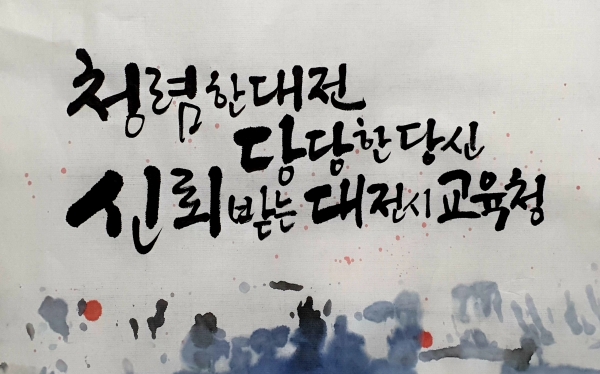 청렴한대전
당당한당신
신뢰받는 대전시교육청